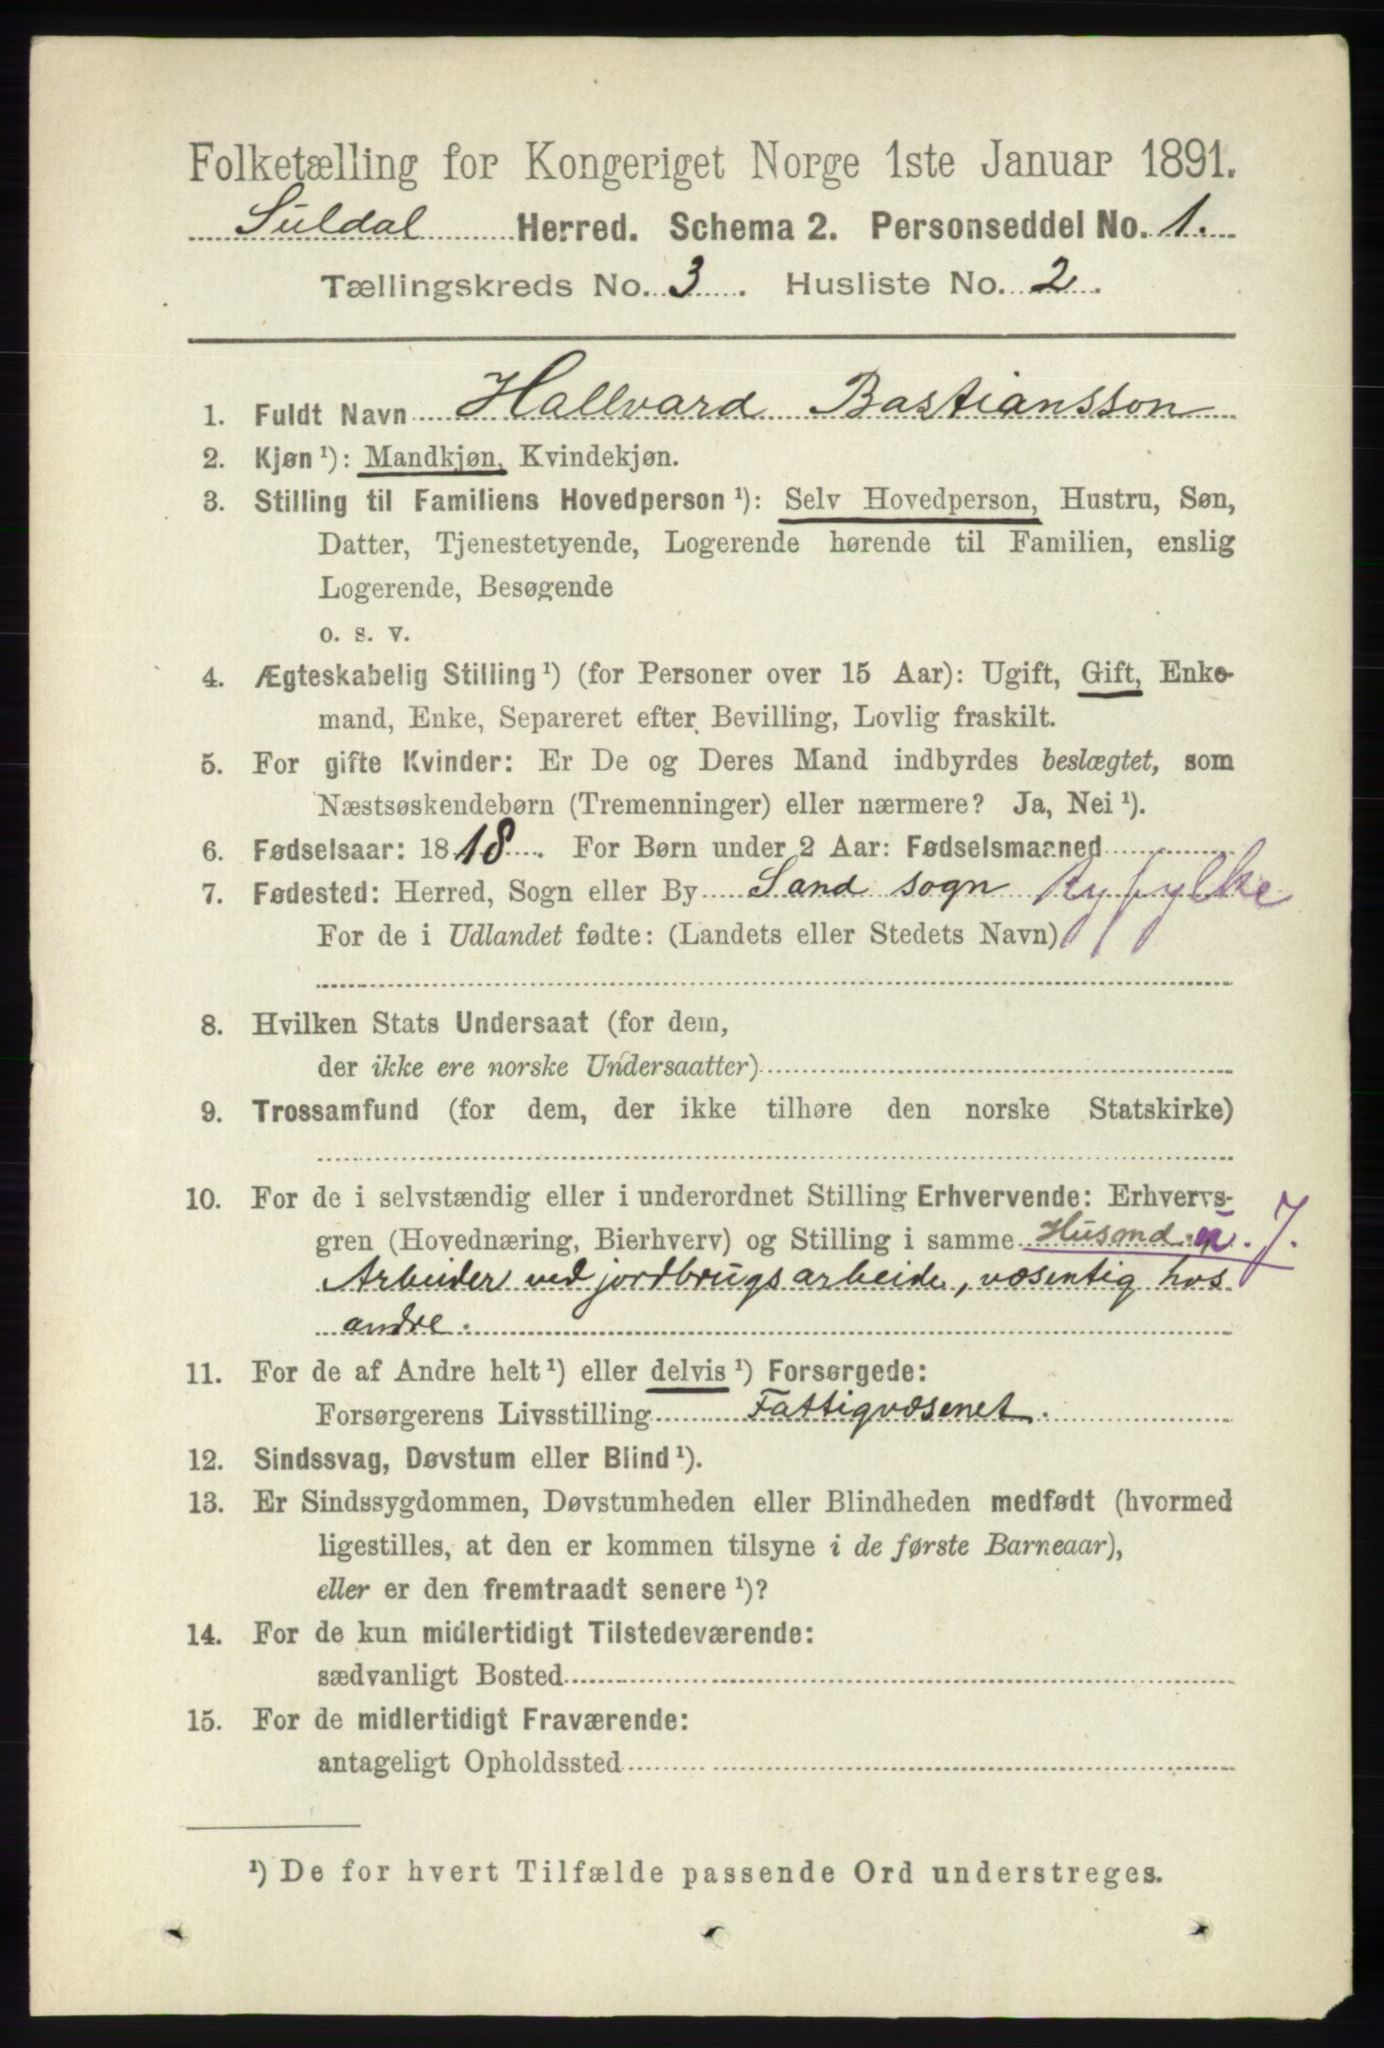 Folketælling for Kongeriget Norge 1ste Januar 1891.
Suldal Herred. Schema 2. Personseddel No. 1.
Tællingskreds No. 3. Husliste No. 2.
1. Fuldt Navn Hallvard Bastiansson
2. Kjøn ¹): Mandkjøn, Kvindekjøn.
3. Stilling til Familiens Hovedperson ¹): Selv Hovedperson, Hustru, Søn,
Datter, Tjenestetyende, Logerende hørende til Familien, enslig
Logerende, Besøgende
o. s. v.
4. Ægteskabelig Stilling ¹) (for Personer over 15 Aar): Ugift, Gift, Enke-
mand, Enke, Separeret efter Bevilling, Lovlig fraskilt.
5. For gifte Kvinder: Er De og Deres Mand indbyrdes beslægtet, som
Næstsøskendebørn (Tremenninger) eller nærmere? Ja, Nei ¹).
6. Fødselsaar: 1818. For Børn under 2 Aar: Fødselsmaaned
7. Fødested: Herred, Sogn eller By Sand sogn Ryfylke
For de i Udlandet fødte: (Landets eller Stedets Navn)
8. Hvilken Stats Undersaat (for dem,
der ikke ere norske Undersaatter)
9. Trossamfund (for dem, der ikke tilhøre den norske Statskirke)
10. For de i selvstændig eller i underordnet Stilling Erhvervende: Erhvervs-
gren (Hovednæring, Bierhverv) og Stilling i samme Husmd. u. J.
Arbeider ved jordbrugsarbeide, væsentig hos
andre.
11. For de af Andre helt ¹) eller delvis ¹) Forsørgede:
Forsørgerens Livsstilling Fattigvæsenet.
12. Sindssvag, Døvstum eller Blind ¹).
13. Er Sindssygdommen, Døvstumheden eller Blindheden medfødt (hvormed
ligestilles, at den er kommen tilsyne i de første Barneaar),
eller er den fremtraadt senere ¹)?
14. For de kun midlertidigt Tilstedeværende:
sædvanligt Bosted
15. For de midlertidigt Fraværende:
antageligt Opholdssted
¹) De for hvert Tilfælde passende Ord understreges.